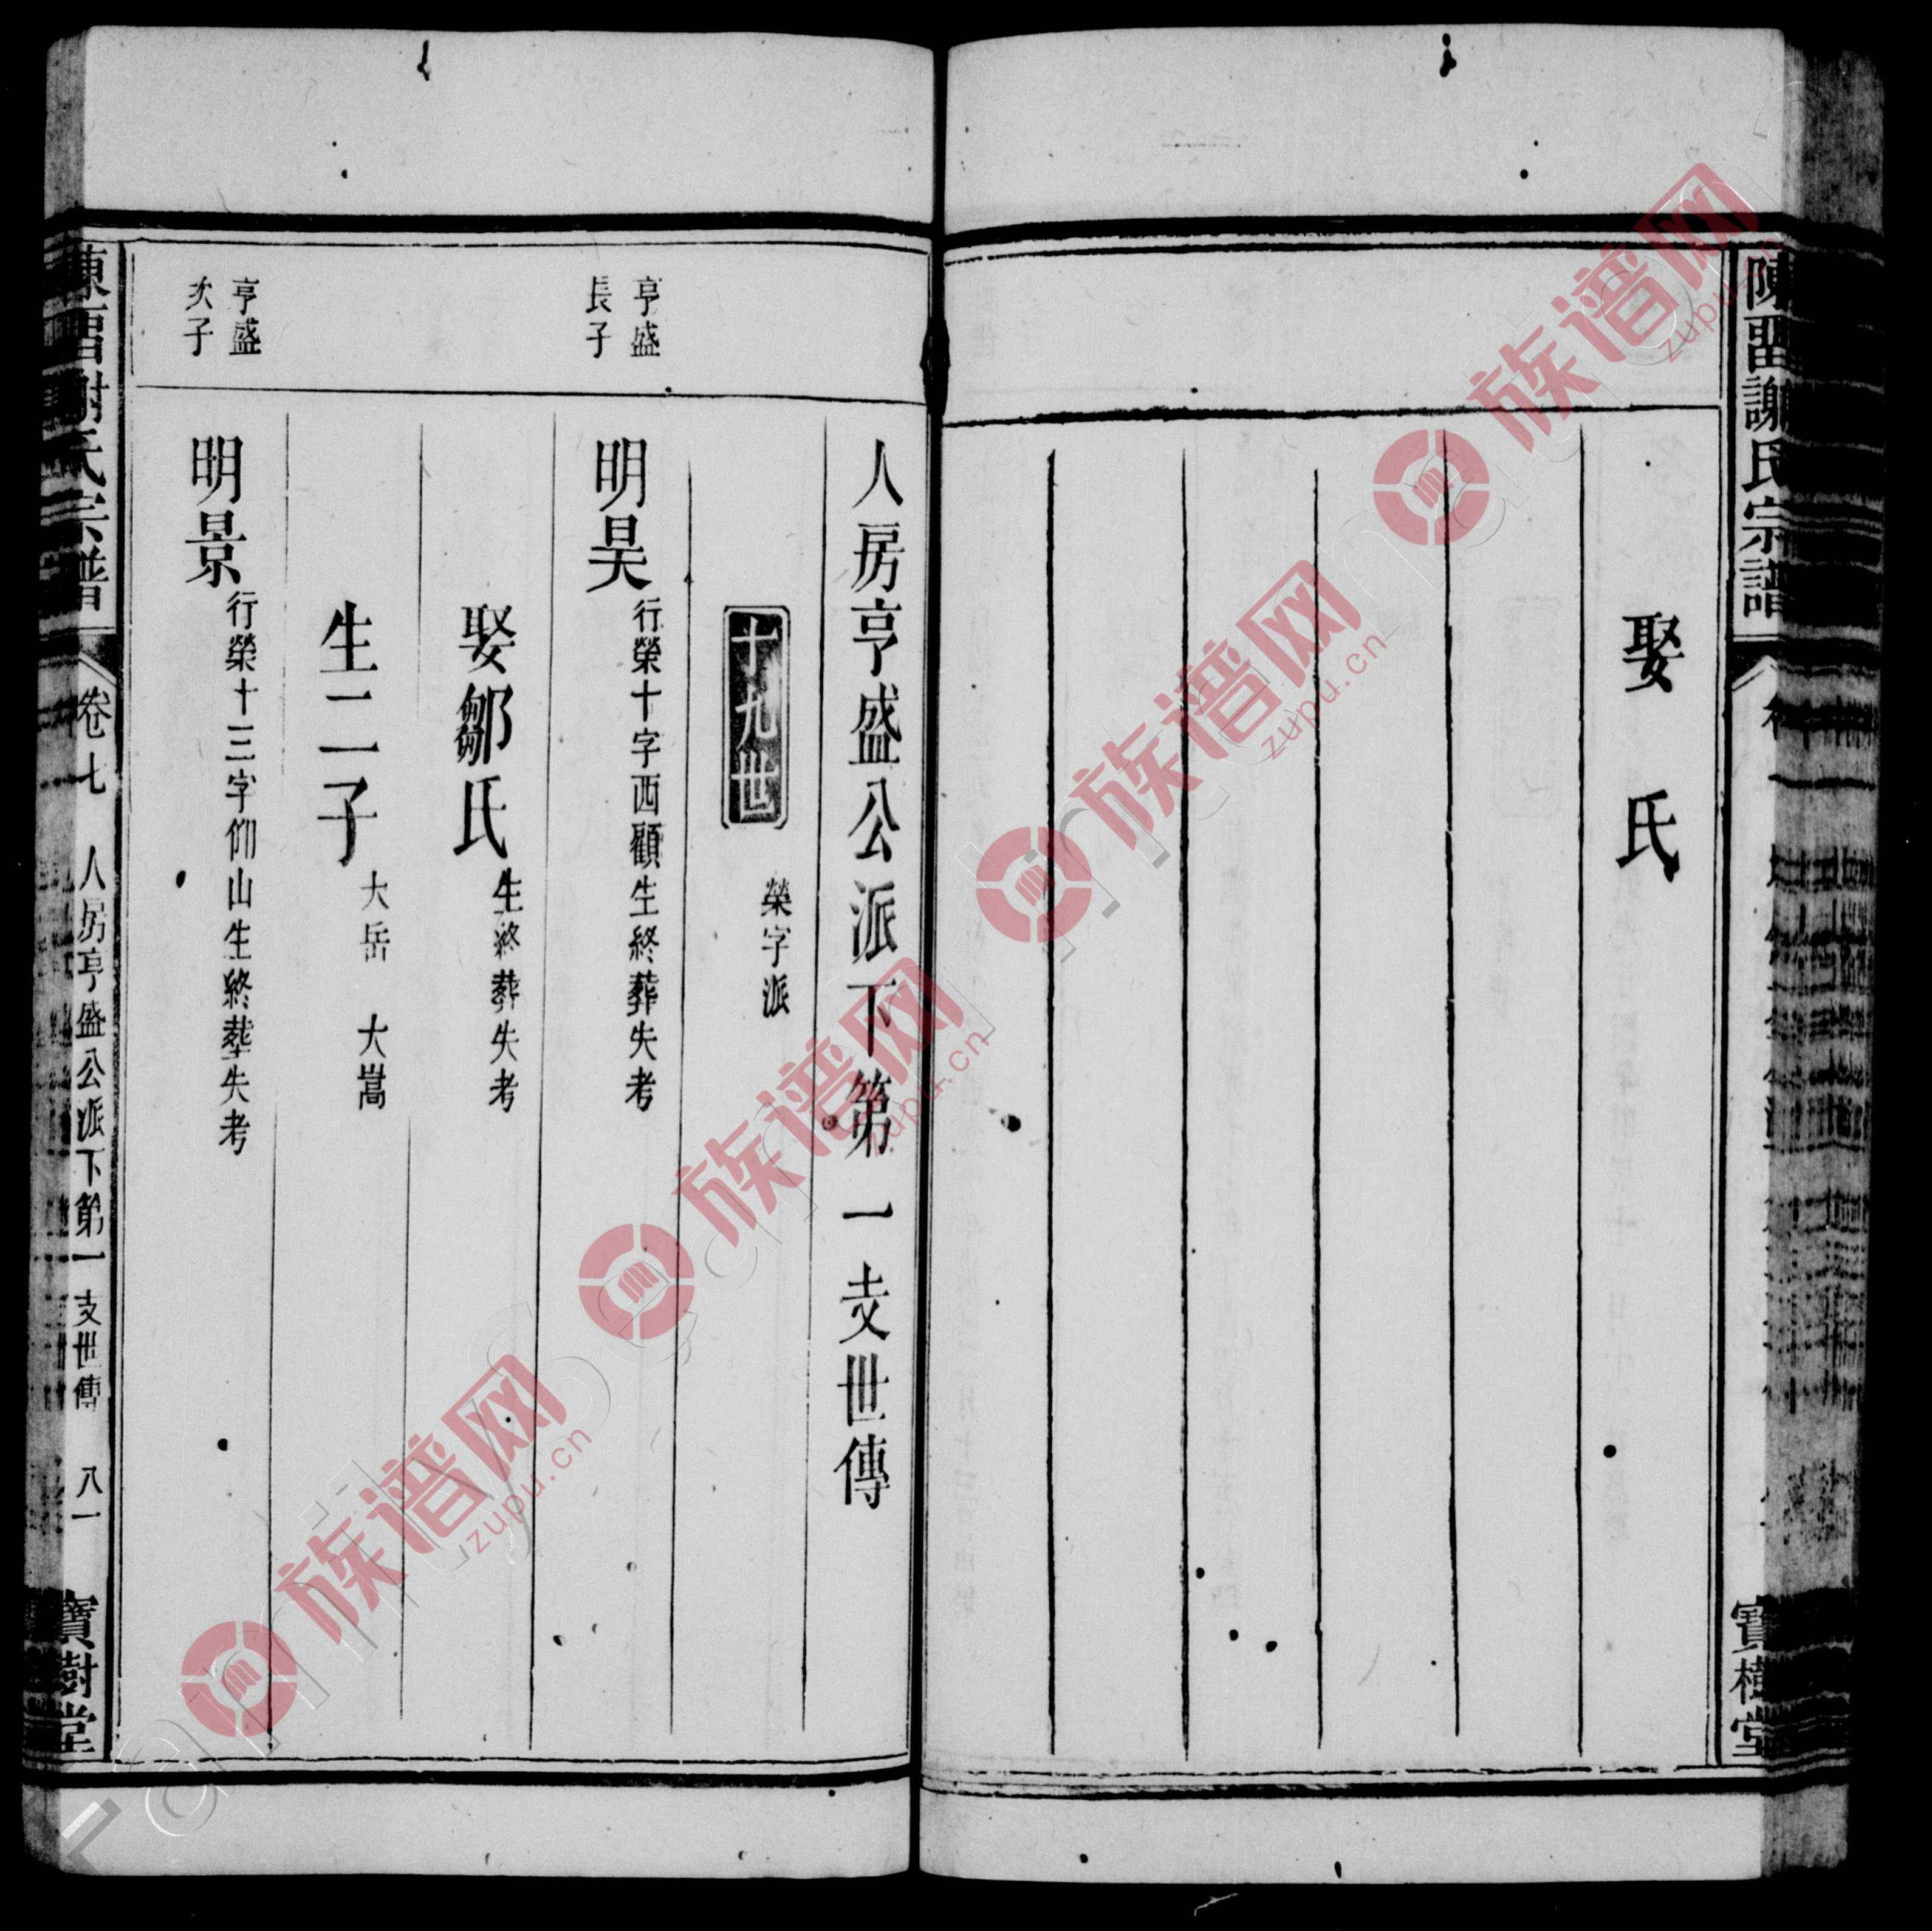 陳畱謝氏宗譜
寶樹堂
娶　氏
人房亨盛公派下第一支世傳
十九世　榮字派
亨盛
長子
明昊　行榮十字西顧生終葬失考
娶鄒氏　生終葬失考
生二子　大岳　大嵩
亨盛
次子
明景　行榮十三字仰山生終葬失考
陳畱謝氏宗譜
卷七　人房亨盛公派下第一支世傳　八一
寶樹堂
族谱网
zupu.cn
族谱网
zupu.cn
族谱网
zupu.cn
族谱网
zupu.cn